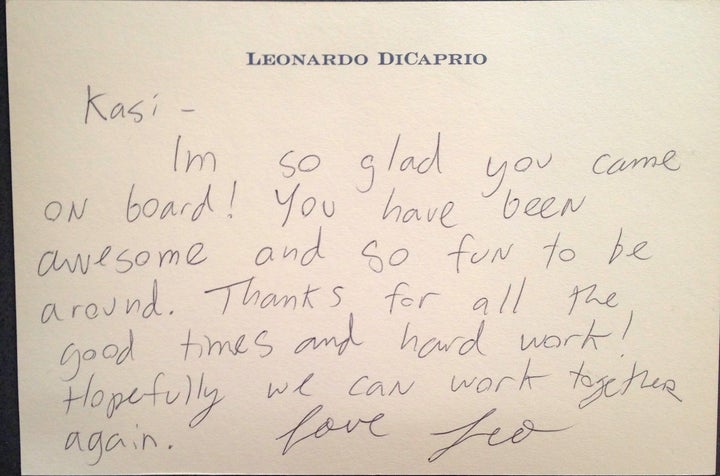 LEONARDO DICAPRIO
Kasi -
Im so glad you came
on board! You have been
awesome and so fun to be
around. Thanks for all the
good times and hard work!
Hopefully we can work together
again. Love Leo